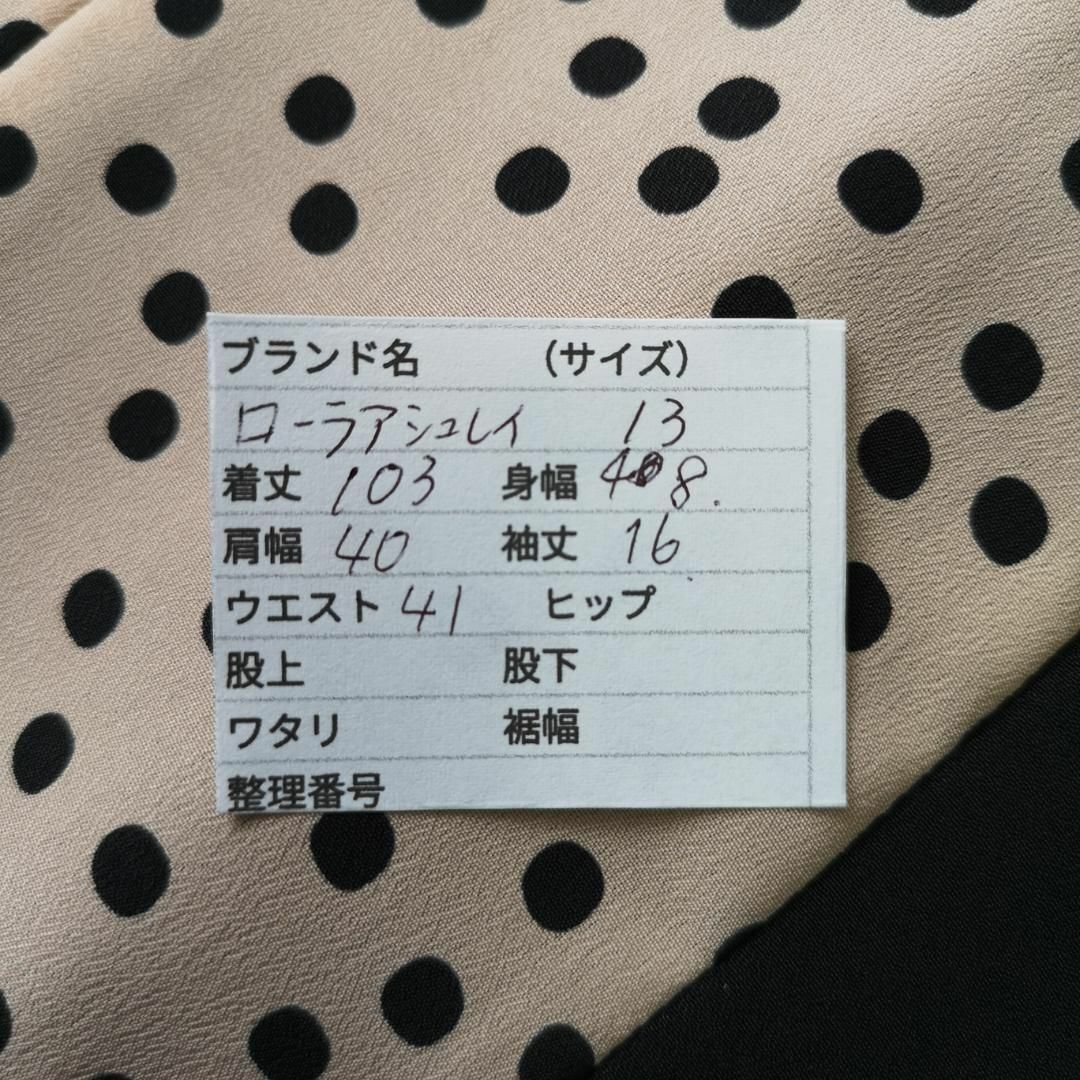 ブランド名 （サイズ）
ローラアシュレイ 13
着丈 103 身幅 48.
肩幅 40 袖丈 16
ウエスト 41 ヒップ
股上 股下
ワタリ 裾幅
整理番号